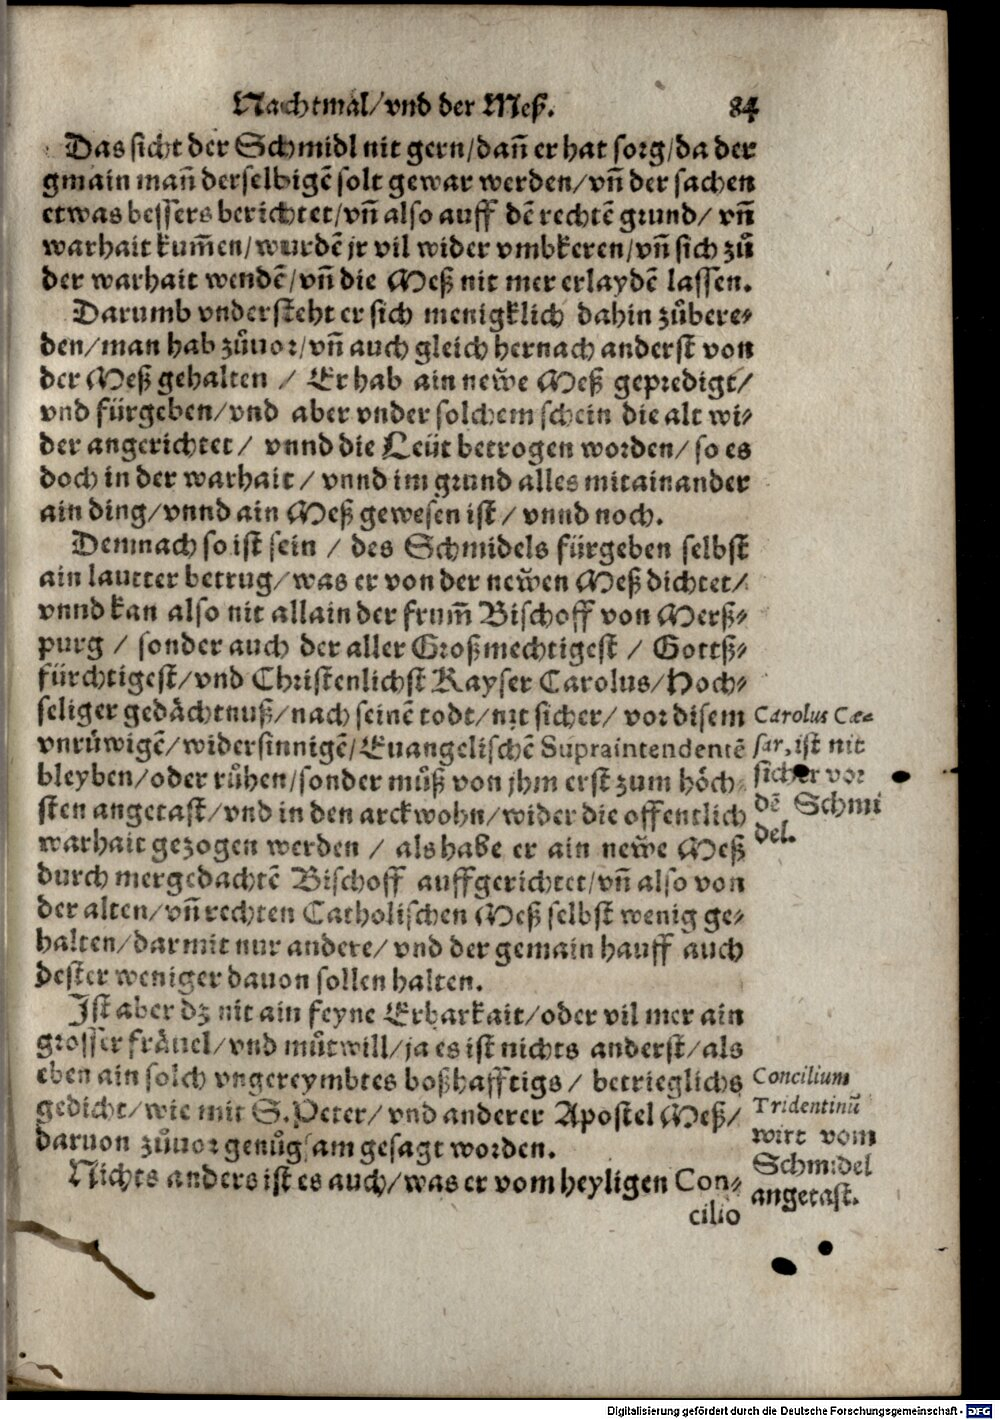 Nachtmal/vnd der Meß. 84
Das sicht der Schmidl nit gern/dañ er hat sorg/da der
gmain mañ derselbigẽ solt gewar werden/vñ der sachen
etwas bessers berichtet/vñ also auff dẽ rechtẽ grund/ vñ
warhait kum̃en/wurdẽ jr vil wider vmbkeren/vñ sich zů
der warhait wendẽ/vñ die Meß nit mer erlaydẽ lassen.
Darumb vndersteht er sich menigklich dahin zůbere-
den/man hab zůuor/vñ auch gleich hernach anderst von
der Meß gehalten / Er hab ain newe Meß gepredigt/
vnd fürgeben/vnd aber vnder solchem schein die alt wi-
der angerichtet/ vnnd die Leüt betrogen worden/ so es
doch in der warhait / vnnd im grund alles mitainander
ain ding/vnnd ain Meß gewesen ist / vnnd noch.
Demnach so ist sein / des Schmidels fürgeben selbst
ain lautter betrug/was er von der newen Meß dichtet/
vnnd kan also nit allain der frum̃ Bischoff von Merß-
purg / sonder auch der aller Großmechtigest / Gottß-
fürchtigest/vnd Christenlichst Kayser Carolus/Hoch-
seliger gedächtnuß/nach seinẽ todt/nit sicher/ vor disem
vnrůwigẽ/widersinnigẽ/Euangelischẽ Supraintendentẽ
bleyben/oder růhen/sonder můß von jhm erst zum höch-
sten angetast/vnd in den arckwohn/wider die offentlich
warhait gezogen werden / als habe er ain newe Meß
durch mergedachtẽ Bischoff auffgerichtet/vñ also von
der alten/vñ rechten Catholischen Meß selbst wenig ge-
halten/darmit nur andere/ vnd der gemain hauff auch
dester weniger dauon sollen halten.
Carolus Cæ-
sar, ist nit
sicher vor
dẽ Schmi
del.
Ist aber dz nit ain feyne Erbarkait/oder vil mer ain
grosser fräuel/vnd můtwill/ja es ist nichts anderst/als
eben ain solch vngereymbtes boßhafftigs/ betrieglichs
gedicht/wie mit S. Peter/ vnd anderer Apostel Meß/
daruon zůuor genůgsam gesagt worden.
Nichts anders ist es auch/was er vom heyligen Con-
cilio
Concilium
Tridentinũ
wirt vom
Schmidel
angetast.
Digitalisierung gefördert durch die Deutsche Forschungsgemeinschaft - DFG